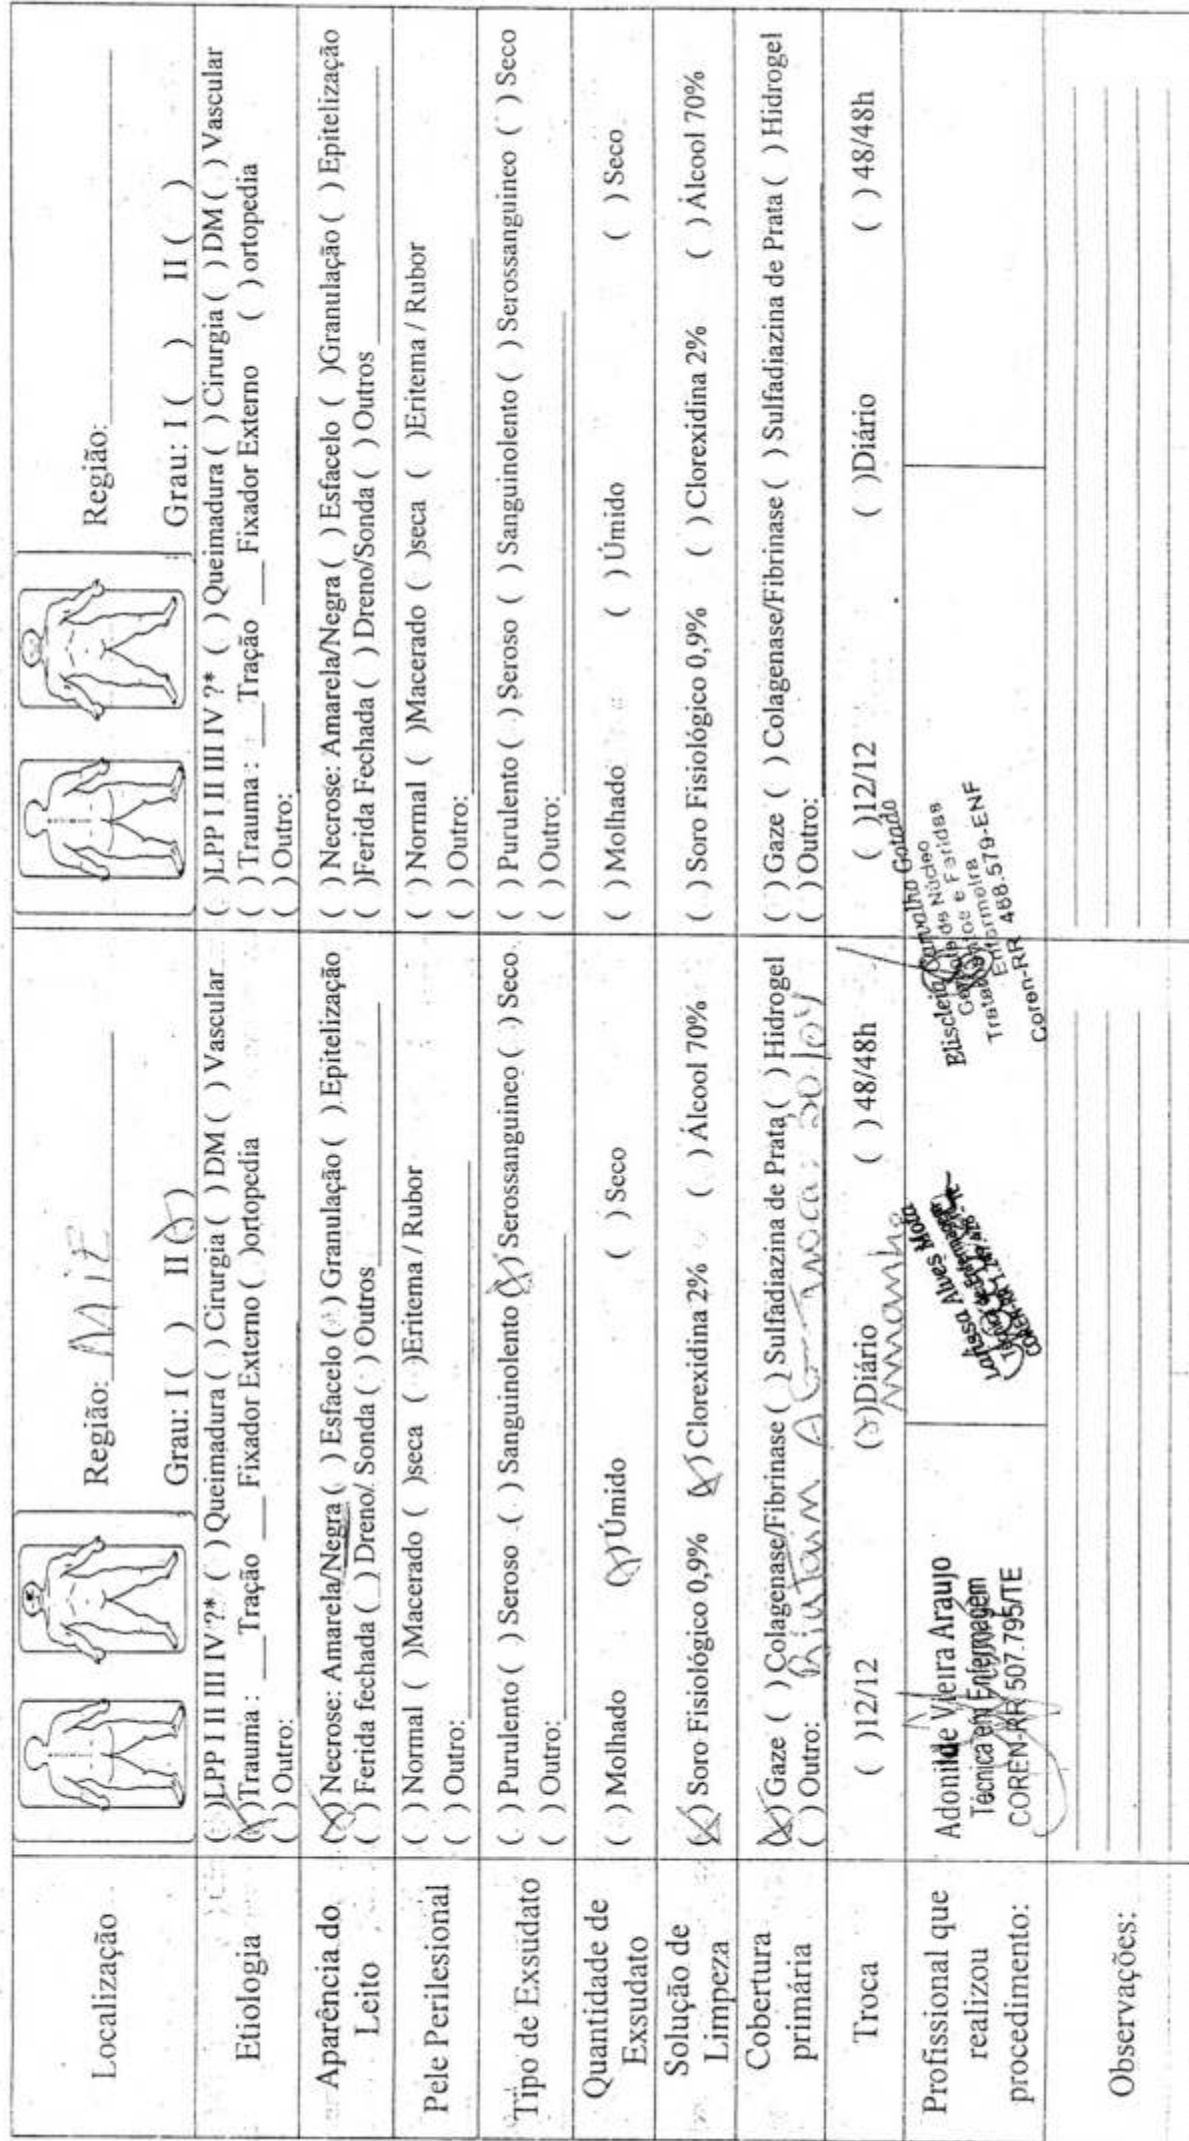 Localização
Região: MIE
Grau: I ( ) II (X)
Região:
Grau: I ( ) II ( )
Etiologia
( )LPP I II III IV ?* ( ) Queimadura ( ) Cirurgia ( ) DM ( ) Vascular
(X)Trauma : ___Tração ___Fixador Externo ( )ortopedia
( ) Outro:
( )LPP I II III IV ?* ( ) Queimadura ( ) Cirurgia ( ) DM ( ) Vascular
( ) Trauma : ___Tração ___Fixador Externo ( ) ortopedia
( ) Outro:
Aparência do
Leito
(X) Necrose: Amarela/Negra ( ) Esfacelo ( ) Granulação ( ) Epitelização
( ) Ferida fechada ( ) Dreno/ Sonda ( ) Outros
( ) Necrose: Amarela/Negra ( ) Esfacelo ( )Granulação ( ) Epitelização
( )Ferida Fechada ( ) Dreno/Sonda ( ) Outros
Pele Perilesional
( ) Normal ( )Macerado ( )seca ( )Eritema / Rubor
( ) Outro:
( ) Normal ( )Macerado ( )seca ( )Eritema / Rubor
( ) Outro:
Tipo de Exsudato
( ) Purulento ( ) Seroso ( ) Sanguinolento (X) Serossanguineo ( ) Seco
( ) Outro:
( ) Purulento ( ) Seroso ( ) Sanguinolento ( ) Serossanguineo ( ) Seco
( ) Outro:
Quantidade de
Exsudato
( ) Molhado (X) Úmido ( ) Seco
( ) Molhado ( ) Úmido ( ) Seco
Solução de
Limpeza
(X) Soro Fisiológico 0,9% (X) Clorexidina 2% ( ) Álcool 70%
( ) Soro Fisiológico 0,9% ( ) Clorexidina 2% ( ) Álcool 70%
Cobertura
primária
(X) Gaze ( ) Colagenase/Fibrinase ( ) Sulfadiazina de Prata ( ) Hidrogel
( ) Outro: AG troca: 20/04
( ) Gaze ( ) Colagenase/Fibrinase ( ) Sulfadiazina de Prata ( ) Hidrogel
( ) Outro:
Troca
( )12/12 (X)Diário ( ) 48/48h
manhã
( )12/12 ( )Diário ( ) 48/48h
Profissional que
realizou
procedimento:
Adonilde Vieira Araujo
Técnica em Enfermagem
COREN-RR 507.795/TE
Larissa Alves Mota
Técnica de Enfermagem
Eliscleia Carvalho Galado
Núcleo
Tratamentos e Feridas
Enfermeira
Coren-RR 468.579-ENF
Observações: